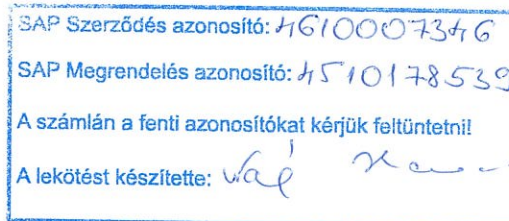 SAP Szerződés azonosító: 4610007346
SAP Megrendelés azonosító: 4510178539
A számlán a fenti azonosítókat kérjük feltüntetni!
A lekötést készítette: